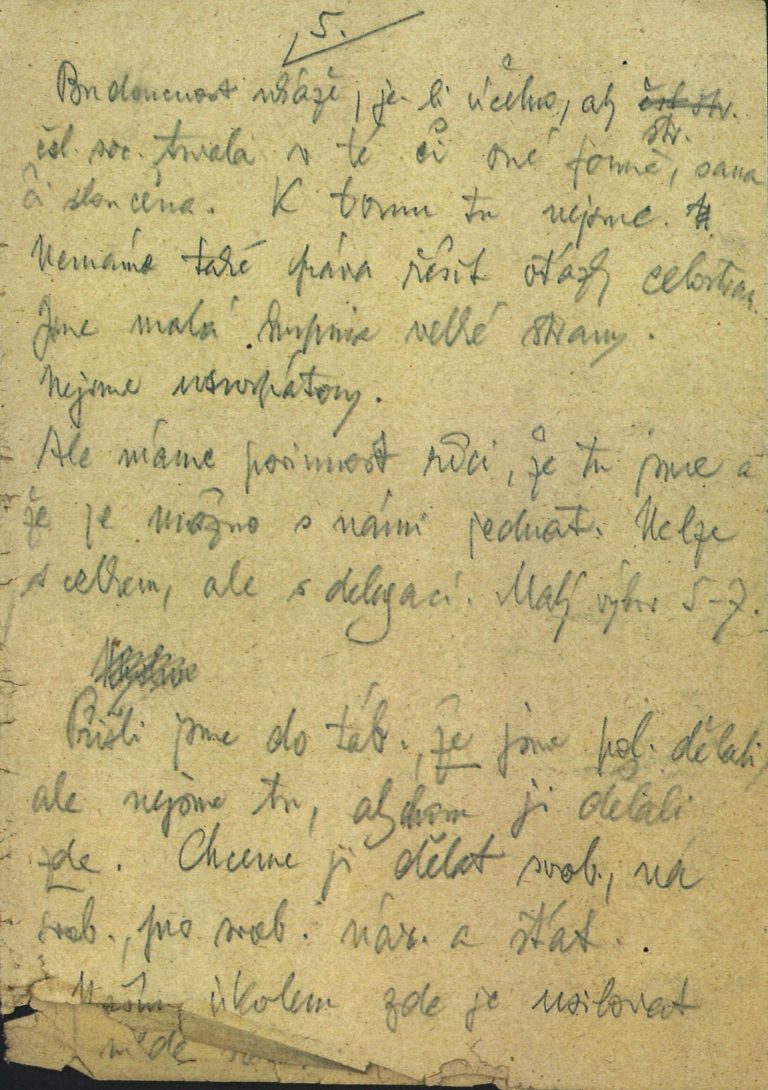 5.
Budoucnost ukáže, je-li účelno, aby čsl. str.
str.
čsl. soc. trvala v té či oné formě, sama
či sloučena. K tomu tu nejsme.
Nemáme také práva řešit otázky celostran.
Jsme malá skupina velké strany.
Nejsme usurpátory.
Ale máme povinnost říci, že tu jsme a
že je možno s námi jednat. Nelze
s celkem, ale s delegací. Malý výbor 5-7.
Přišli jsme do táb., že jsme pol. dělali,
ale nejsme tu, abychom ji dělali
zde. Chceme ji dělat svob., na
svob., pro svob. nár. a stát.
Naším úkolem zde je usilovat